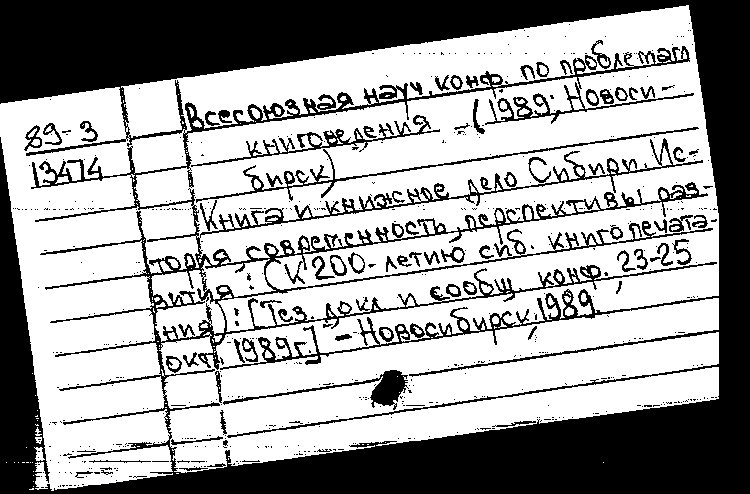 89-3
13474
Всесоюзная науч. конф. по проблемам
книговедения - (1989; Новоси-
бирск)
Книга и книжное дело Сибири. Ис-
тория, современность, перспективы раз-
вития : (К 200-летию сиб. книгопечата-
ния) : [Тез. докл и сообщ. конф., 23-25
окт. 1989г.] - Новосибирск, 1989.